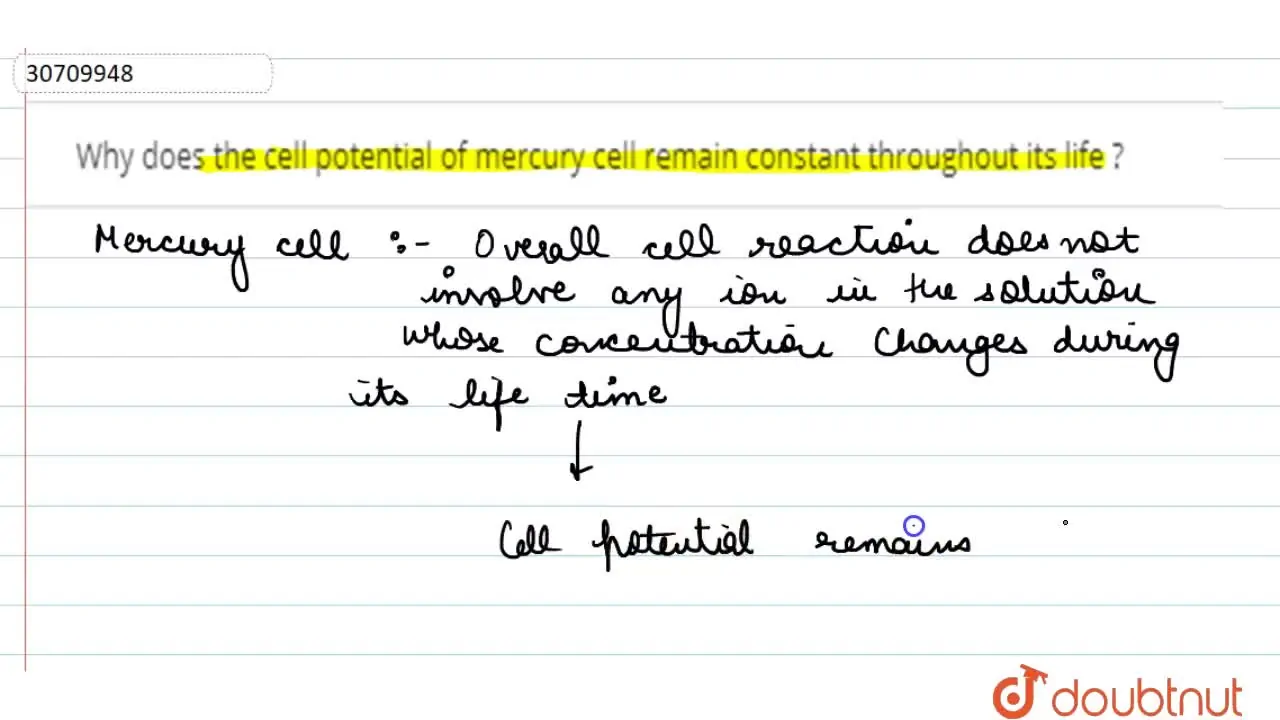 30709948
Why does the cell potential of mercury cell remain constant throughout its life ?
Mercury cell :- Overall cell reaction does not
involve any ion in the solution
whose concentration changes during
its life time
Cell potential remains
doubtnut